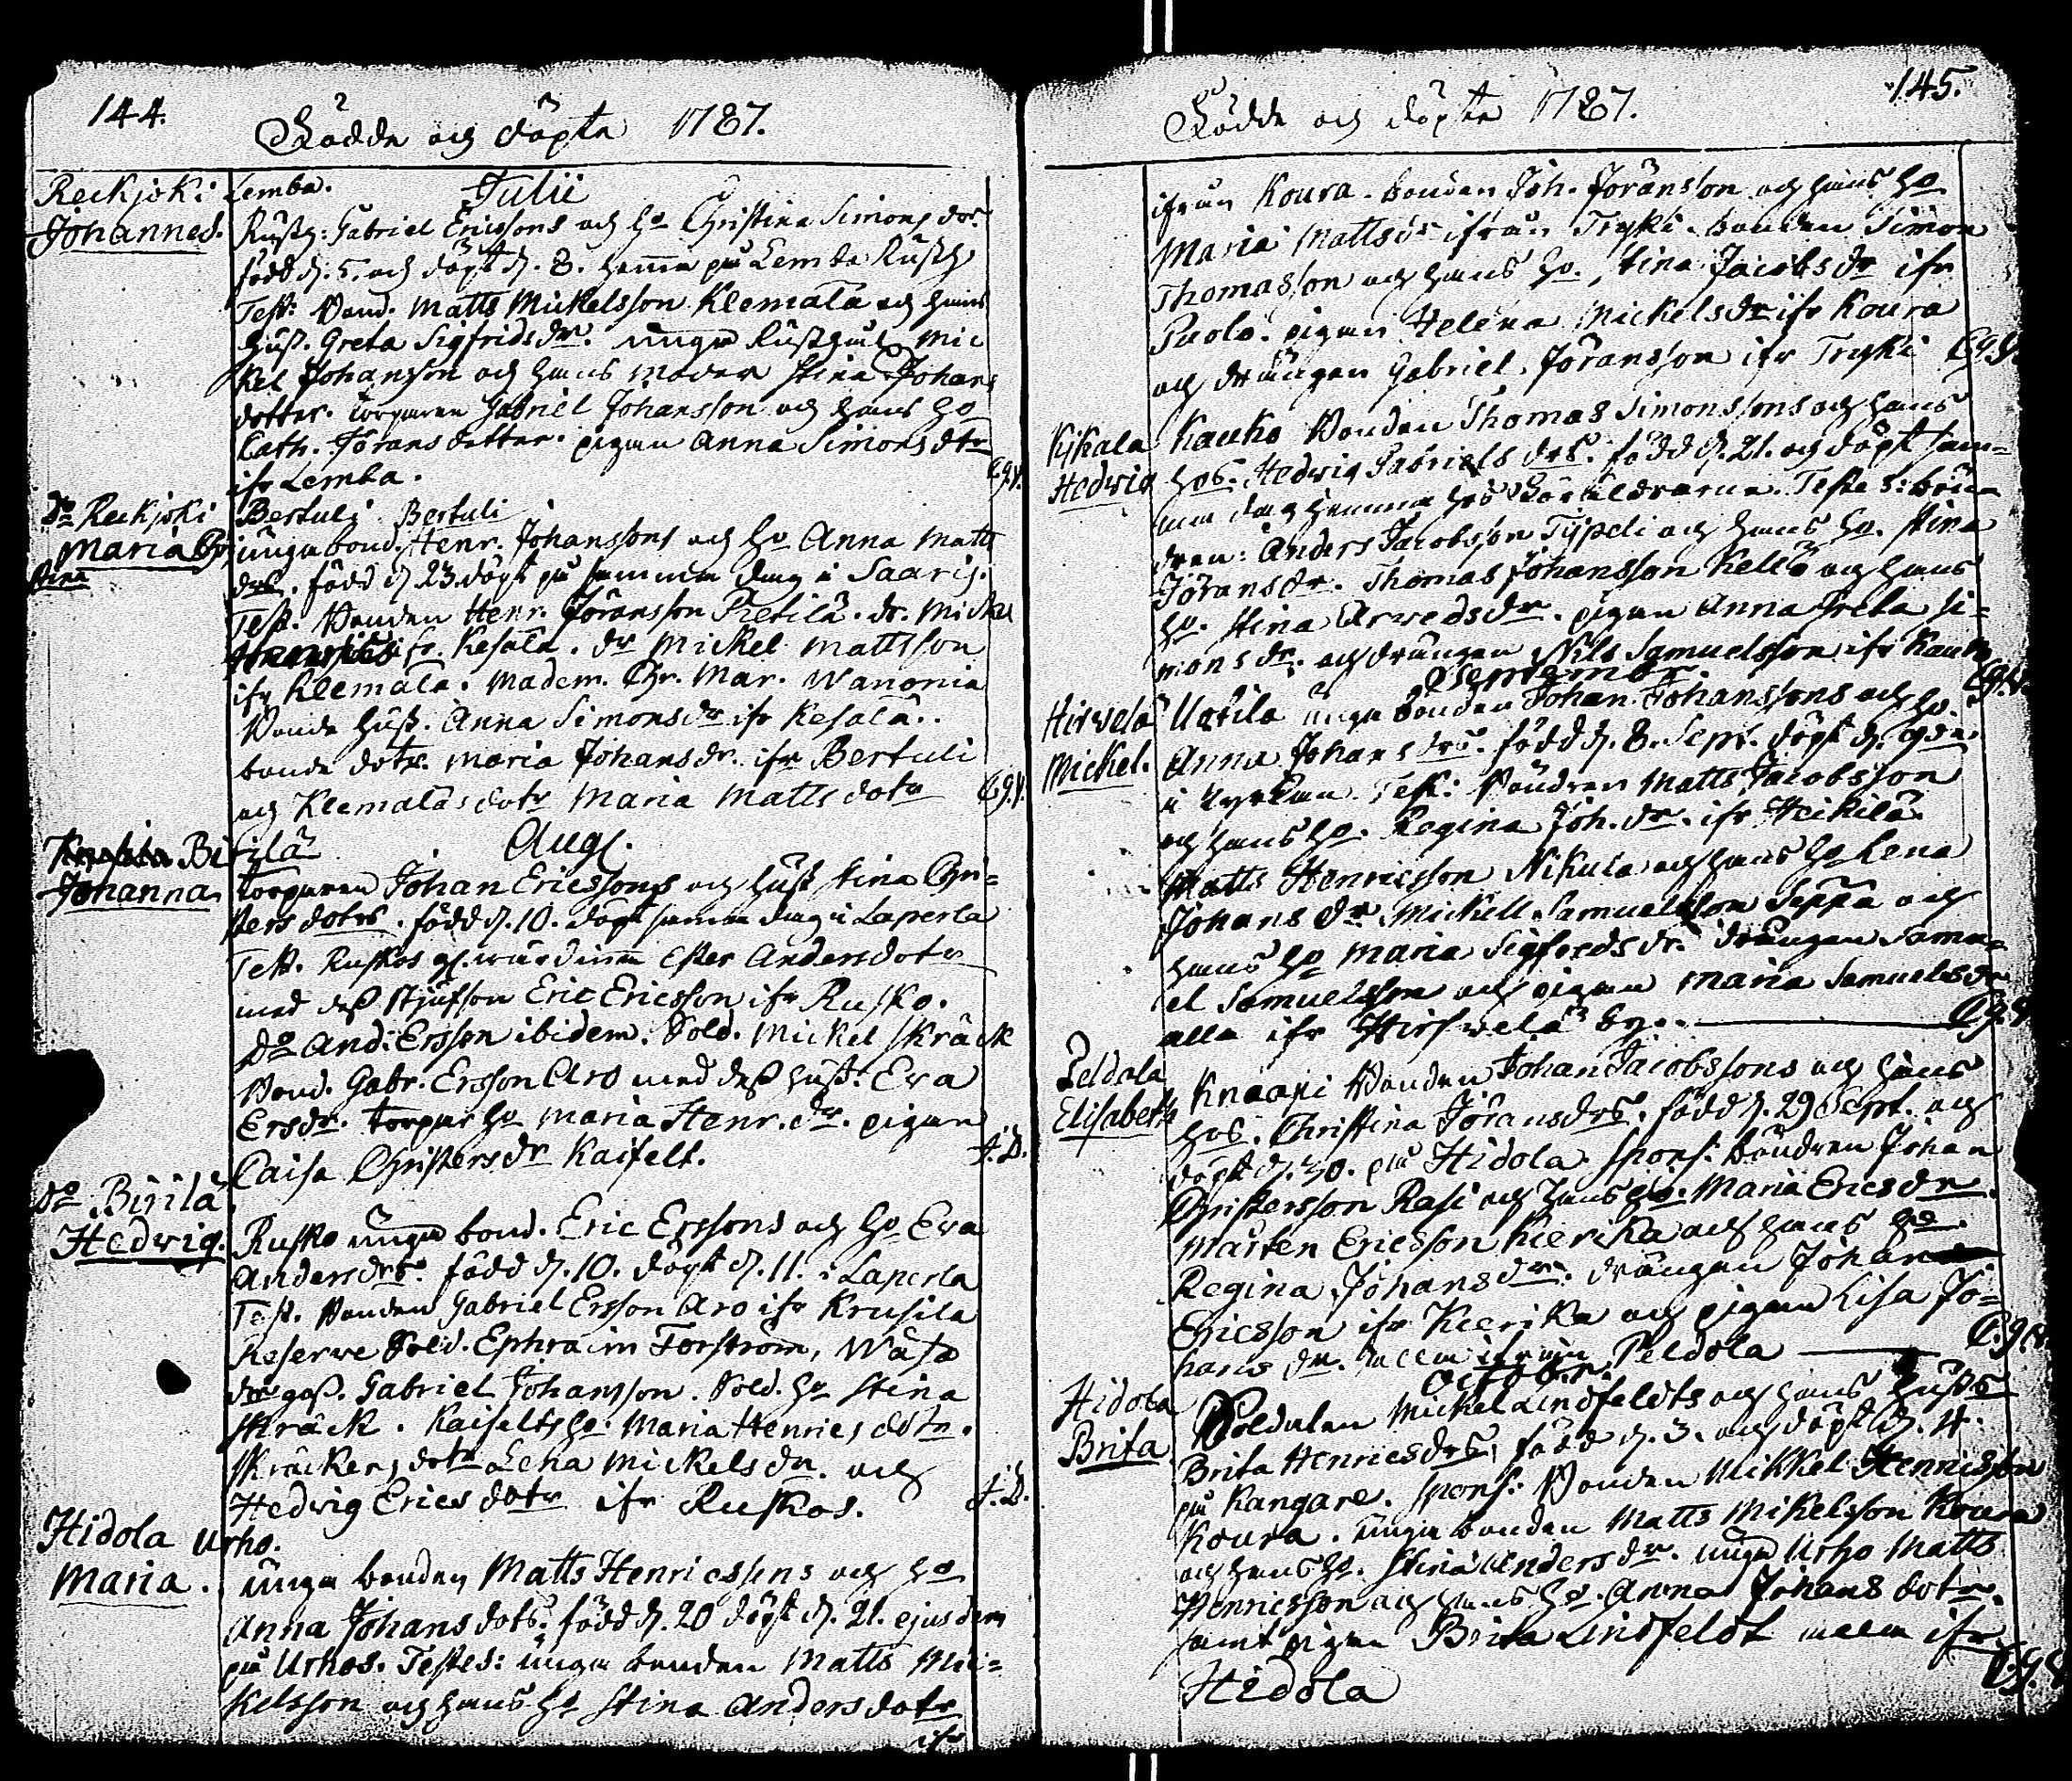 144.
Födde och döpte 1787.
Reckjoki Lemba. Julii
Johannes. Rusth: Gabriel Ericssons och ho Christina Simons dor.
född d. 5. och döpt d. 8. hemma på Lemba Rusth
Test: Bond. Matts Mickelsson Klemalä och hans
hust. Greta Sigfrids dr. unga Rusth Mic
kel Johansson och hans moder Stina Johans
dotter. torparen Gabriel Johansson och hans ho
Cath. Jörans dotter. pigan Anna Simons dtr
ifr Lemba.
do Reckjoki Bertuli Bertuli
Maria Chri unga bond. Henr. Johanssons och ho Anna Matts
stina drs. född d 23. döpt på samma dag i Saaris.
Test. Bonden Henr. Jöransson Pietilä. dr. Mickel
ifr. Kesälä. dr Mickel Mattsson
ifr Klemälä. Madem. Chr. Mar. Wanonia
Bonde hust. Anna Simonsdr ifr Kesälä.
bonde dotr. Maria Johansdr. ifr Bertuli
och Klemäläs dotr Maria Matts dotr
Birilä Aug.
Johanna torparen Johan Ericssons och hust Stina Chri=
sters dotrs. född d. 10. döpt samma dag i Laperla
Test. Ruskos gl. wärdinna Ester Andersdotr
med dess stjufson Eric Ericsson ifr Rusko.
Do And: Ersson ibidem. Sold. Mickel Skräck
Bond. Gabr. Ersson Aro med dess hust. Eva
Ersdr. torpar ho Maria Henr. dr. pigan
Caisa Christersdr Kaifelt.
do Birilä
Hedvig. Rusko unga bond. Eric Erssons och ho Eva
Andersdrs. född d. 10. döpt d. 11. i Laperla
Test. Bonden Gabriel Ersson Aro ifr Krusila
Reserve Sold. Ephraim Forström,
Gabriel Johansson. Sold. ho Stina
Skräck. Kaifelts ho. Maria Henrics dotr.
Skräckens dotr Lena Mickelsdr. och
Hedvig Erics dotr ifr Ruskos.
Hidola Urho.
Maria. unga bonden Matts Henricssons och ho
Anna Johans dotrs. född d. 20 döpt d. 21. ejusdem
på Urhos. Testes: unga bonden Matts Mic=
kelsson och hans ho Stina Andersdotr
ifr
145.
Födde och döpte 1787.
ifrån Koura. bonden Joh. Jöransson och hans ho
Maria Mattsdr ifrån Tryki. bonden Simon
Thomasson och hans ho. Stina Jacobsdr ifr
Puolo. pigan Helena Mickelsdr ifr Koura
och drängen Gabriel Jöransson ifr Tryki
Kjkala Kauko Bonden Thomas Simonssons och hans
Hedwig hos. Hedwig Gabriels drs. född d. 21. och döpt sam=
ma dag hemma hos Föräldrarna. Testes: bön=
dren: Anders Jacobsson Typeli och hans ho. Stina
Jöransdr. Thomas Johansson Kello och hans
ho. Stina Arwedsdr. pigan Anna Greta Si=
monsdr. och drängen Nils Samuelsson ifr Kauko
September
Hirwelä Uotila unga bonden Johan Johanssons och ho.
Mickel. Anna Johans drs. född d. 8. Sept. döpt d. 9de.
i kyrkan. Test: Bondren Matts Jacobsson
och hans ho. Regina Joh. dr. ifr Heikilä
Matts Henricsson Nikula och hans ho Lena
Johans dr. Mickell Samuelsson Seppä och
hans ho Maria Sigfredsdr. drängen Samu=
el Samuelsson och pigan Maria Samuelsdr
alla ifr Hirfwelä by.
Peldola Knaapi Bonden Johan Jacobssons och hans
Elisabeth hos. Christina Jöransdrs. född d. 29 Sept. och
döpt d. 30. på Hidola. Spons: bondren Johan
Christersson Rasi och hans ho. Maria Ericsdr.
Mårten Ericsson Kierika och hans ho.
Regina Johansdr. drängen Johan
Ericsson ifr Kierika och pigan Lisa Jo=
hans dr. alla ifrån Peldola
October.
Hidola Soldaten Mickel Lindfeldts och hans husts
Brita Brita Henricsdrs, född d. 3. och döpt d. 4.
på Kangare. Spons: Bonden Mikkel Henricsson
Koura. unga bonden Matts Mikelsson Koura
och hans ho. Stina Andersdr. unga Urho Matts
Henricsson och hans ho. Anna Johans dotr.
samt pigan Brita Lindfeldt alla ifr
Hidola